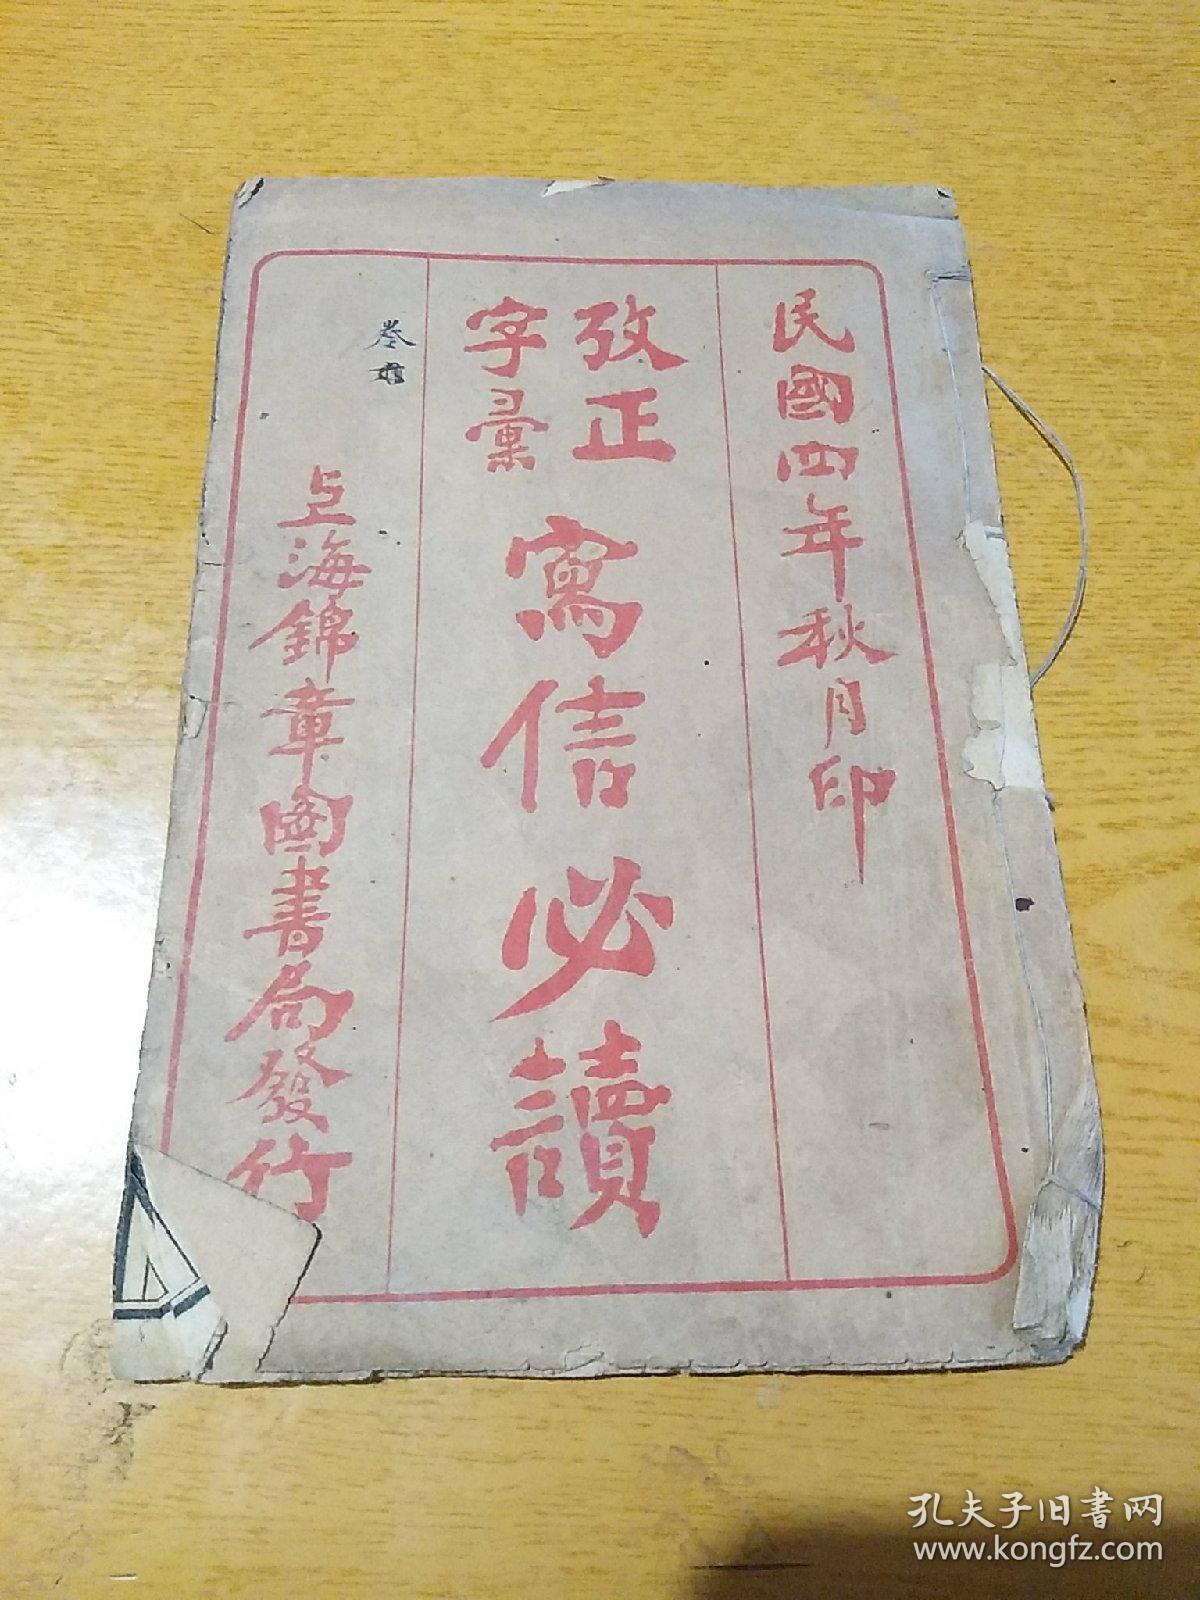 民國四年秋月印
攷正
字彙
寫信必讀
卷首
上海錦章圖書局發行
孔夫子旧书网
www.kongfz.com